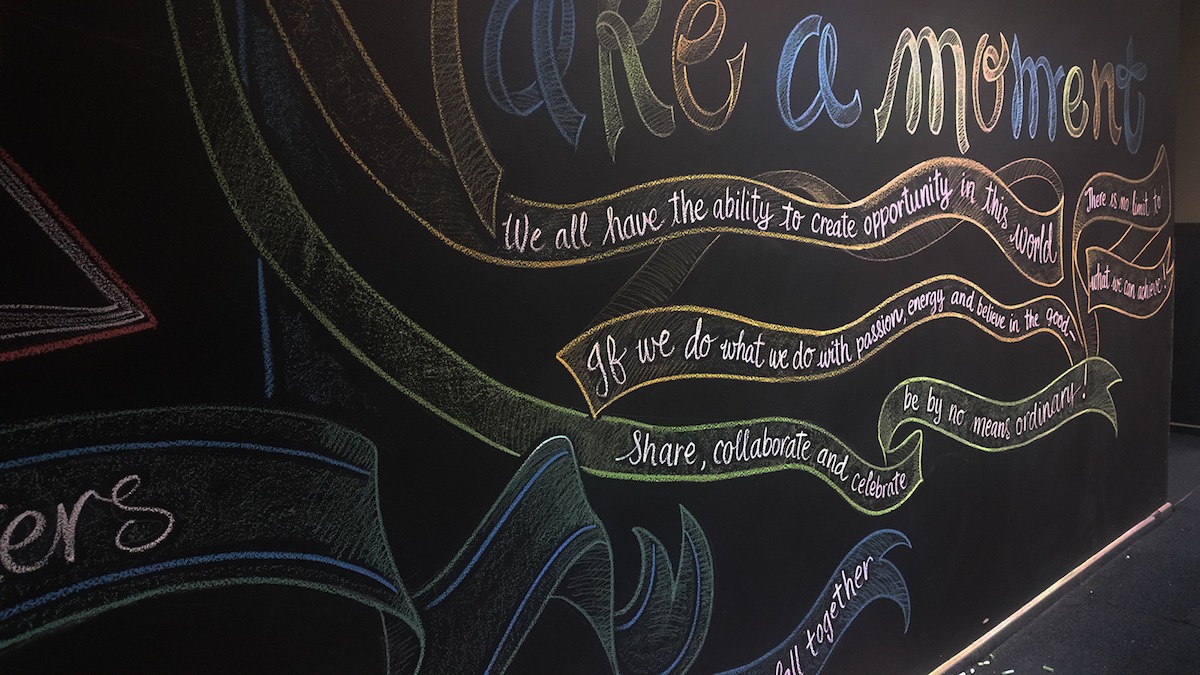 ake a moment
We all have the ability to create opportunity in this world
There is no limit to
what we can achieve!
If we do what we do with passion, energy and believe in the good-
be by no means ordinary!
Share, collaborate and celebrate
ers
all together